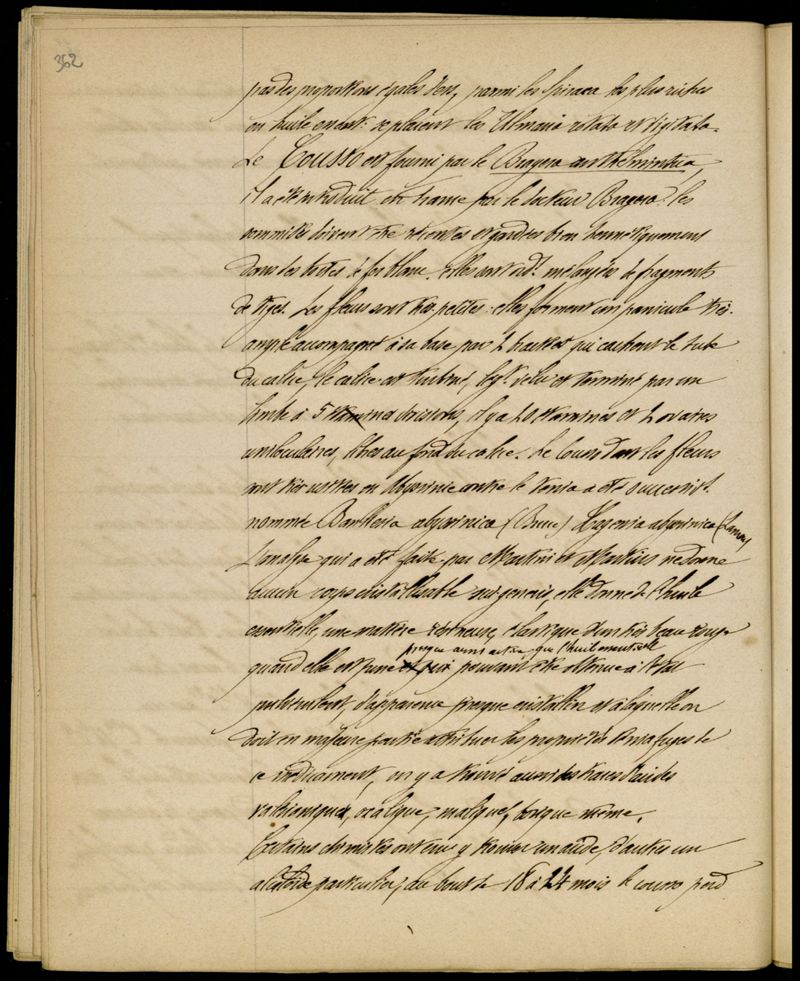 362
pas des proportions égales d'ens, parmi les Spiraea les plus riches
en huile essent. se placent les Ulmaria lobata et digitata.
Le Cousso est fourni par le Brayera anthelmintica,
il a été introduit en France par le docteur Brayera. les
sommités doivent être récentes et gardées bien hermétiquement
dans des boites de fer blanc. elles sont ordt. mélangées de fragments
de tiges. Les fleurs sont très petites. elles forment un panicule très
ample accompagné à sa base par 2 bractées qui cachent le tube
du calice, le calice est turbiné, légt. velu et terminé par un
limbe à 5 divisions, il y a 20 étamines et 2 ovaires
uniloculaires, libres au fond du calice. Le Cousso dont les fleurs
sont très usitées en Abyssinie contre le tenia a été successivt.
nommée Bankesia abyssinica (Bruce) Hagenia abyssinica (Lamarck)
L'analyse qui a été faite par Martini et Martius ne donne
aucun corps cristallisable sui generis, elle donne de l'huile
essentielle, une matière résineuse, élastique d'un très beau rouge
presque aussi active que l'huile essentielle
quand elle est pure et qui pouvant être obtenue à l'état
pulvérulent, d'apparence presque cristallin et à laquelle on
doit en majeure partie attribuer les propriétés ténifuges de
ce médicament, on y a trouvé aussi des traces d'acides
valérianique, oxalique, malique, borique même.
Certains chimistes ont cru y trouver un acide, d'autres un
alcaloïde particulier, au bout de 18 à 24 mois le cousso perd